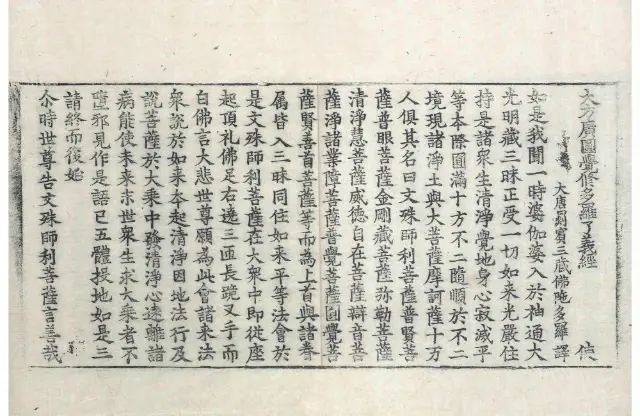 大方廣圓覺修多羅了義經
大唐罽賓三藏佛陁多羅 譯
如是我聞一時婆伽婆入於神通大
光明藏三昧正受一切如來光嚴住
持是諸衆生清淨覺地身心寂滅平
等本際圓滿十方不二隨順於不二
境現諸淨土與大菩薩摩訶薩十万
人俱其名曰文殊師利菩薩普賢菩
薩普眼菩薩金剛藏菩薩弥勒菩薩
清淨慧菩薩威德自在菩薩辯音菩
薩淨諸業障菩薩普覺菩薩圓覺菩
薩賢善首菩薩等而為上首與諸眷
属皆入三昧同住如來平等法會於
是文殊師利菩薩在大衆中即從座
起頂礼佛足右遶三匝長跪叉手而
白佛言大悲世尊願為此會諸來法
衆說於如來本起清淨因地法行及
說菩薩於大乘中發清淨心遠離諸
病能使未來末世衆生求大乘者不
墮邪見作是語已五體投地如是三
請終而復始
尒時世尊告文殊師利菩薩言善哉